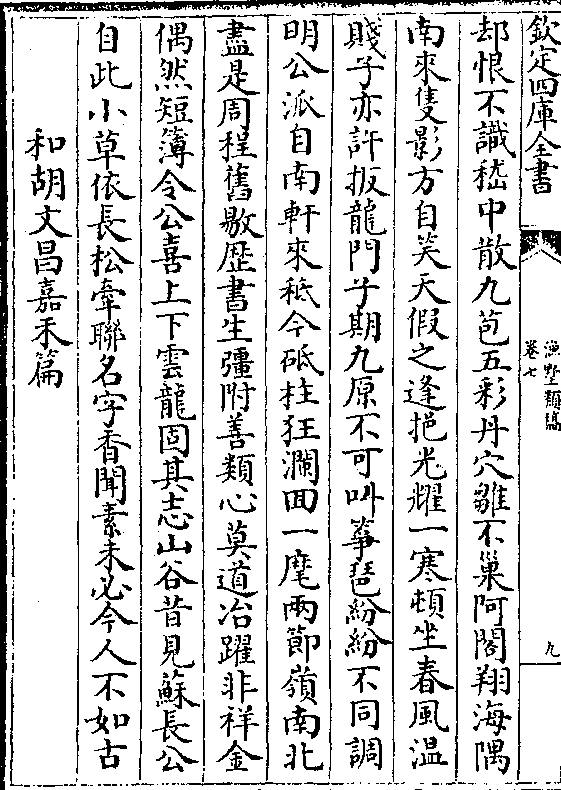 欽定四庫全書
漁墅類稿
卷七
九
却恨不識嵇中散九苞五彩丹穴雛不巢阿閣翔海隅
南來隻影方自笑天假之逢挹光耀一寒頓坐春風温
賤子亦許扳龍門子期九原不可呌筝琶紛紛不同調
明公派自南軒來秪今砥柱狂瀾回一麾兩節嶺南北
盡是周程舊敭歴書生彊附善類心莫道冶躍非祥金
偶然短簿令公喜上下雲龍固其志山谷昔見蘇長公
自此小草依長松牽聯名字香聞素未必今人不如古
和胡文昌嘉禾篇